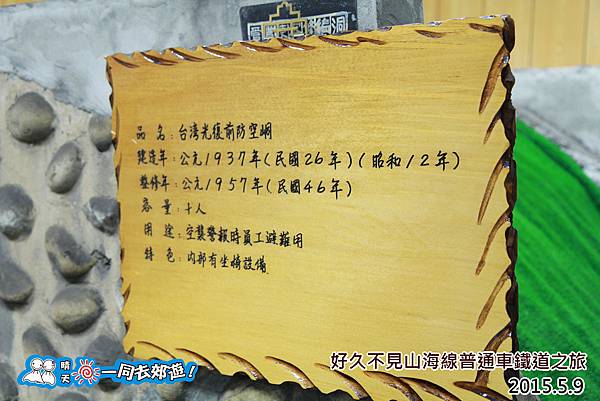 品 名：台湾光復前防空峒
建造年：公元1937年(民國26年)(昭和12年)
整修年：公元1957年(民國46年)
容 量：十人
用 途：空襲警報時員工避難用
特 色：内部有坐椅設備
晴天 一同衣郊遊！
好久不見山海線普通車鐵道之旅
2015.5.9